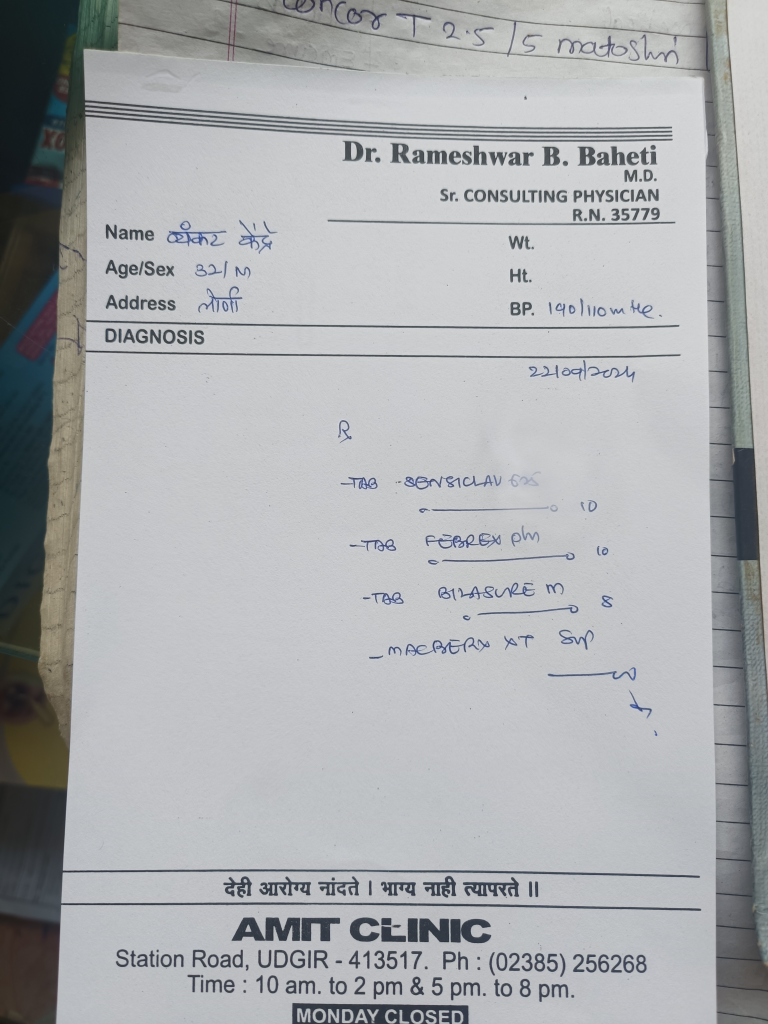 concor T 2.5/5 matoshri
Dr. Rameshwar B. Baheti
M.D.
Sr. CONSULTING PHYSICIAN
R.N. 35779
Name व्यंकट केंद्रे Wt.
Age/Sex 32/M Ht.
Address लोणी BP. 190/110 m Hg.
DIAGNOSIS
22/09/2024
℞
-TAB SENSICLAV 625
10
-TAB FEBREX plus
10
-TAB BILASURE M
8
-MACBERY XT Syp
देही आरोग्य नांदते । भाग्य नाही त्यापरते ॥
AMIT CLINIC
Station Road, UDGIR - 413517. Ph : (02385) 256268
Time : 10 am. to 2 pm & 5 pm. to 8 pm.
MONDAY CLOSED